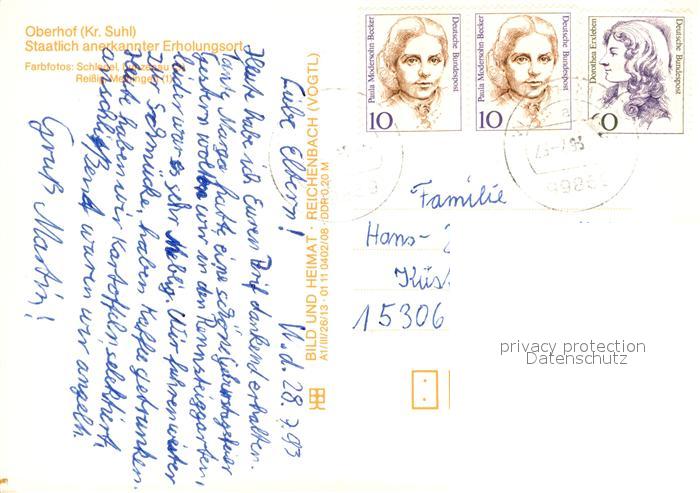 Oberhof (Kr. Suhl)
Staatlich anerkannter Erholungsort
Farbfotos:
Reißig, Meiningen (1)
BILD UND HEIMAT · REICHENBACH (VOGTL)
A1/III/26/13 · 01 11 0402/08 · DDR 0,20 M
Deutsche Bundespost
Paula Modersohn-Becker
10
Deutsche Bundespost
Paula Modersohn-Becker
10
Deutsche Bundespost
Dorothea Erxleben
0
W. d. 28.7.93
Liebe Eltern!
Heute habe ich Euren Brief dankend erhalten.
Tante hatte eine schöne Geburtstagsfeier
Gestern wollten wir in den Rennsteiggarten,
leider war es sehr neblig. Wir fuhren weiter
haben Kaffee getrunken.
Heute haben wir Kartoffeln selektiert,
anschließend waren wir angeln.
Gruß Martin!
Familie
Hans-
Küs
15306
privacy protection
Datenschutz